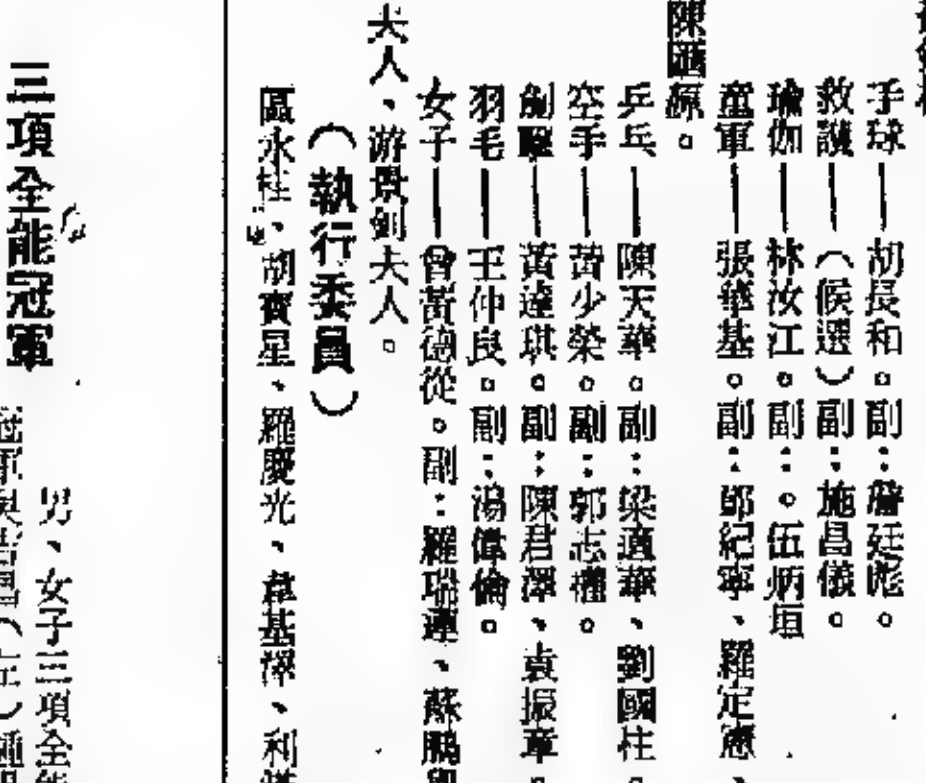 手球——胡長和。副：廷彪。
救護——（候選）副：施昌儀。
瑜伽——林汝江。副：。伍炳垣
童軍——張華基。副：鄧紀寧、羅定憲、
陳匯源。
乒乓——陳天華。副：梁適華、劉國柱。
空手——黃少榮。副：郭志權。
劍擊——黃達琪。副：陳君澤、袁振章。
羽毛——王仲良。副：湯偉倫。
女子——曾黃德從。副：羅瑞蓮、蘇鵬
夫人、游景釗夫人。
（執行委員）
區永柱、胡寶星、羅慶光、韋基澤、利
三項全能冠軍
男、女子三項全能
冠軍